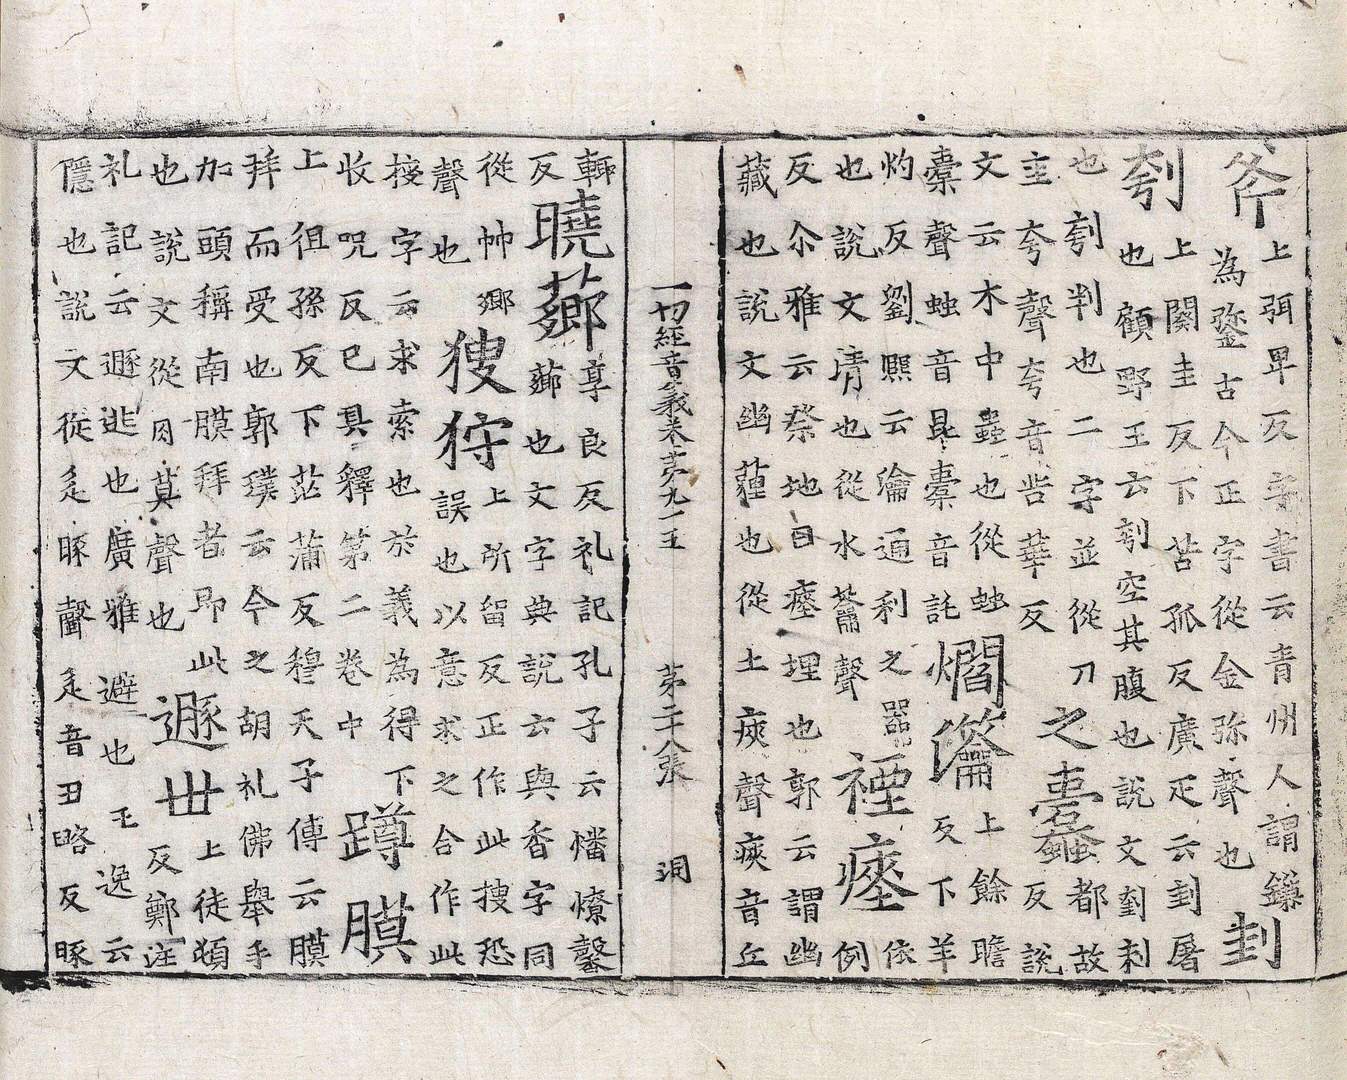 斧
上弭卑反字書云青州人謂鎌
為鎏古今正字從金弥聲也
刲
刳
上闋圭反下苦孤反廣疋云刲屠
也顧野王云刳空其腹也說文刲刺
也刳判也二字並從刀
圭夸聲夸音呰華反
之蠹
都故
反說
文云木中蟲也從䖵
橐聲䖵音昆橐音託
爓瀹
上餘瞻
反下羊
灼反劉熈云瀹通利之器
也說文漬也從水龠聲
禋瘞
依
例
反尒雅云祭地曰瘞埋也郭云謂幽
藏也說文幽薶也從土㾜聲㾜音丘
一切經音義卷苐九十五 苐二十八張 洞
輒
反
膮薌
享良反礼記孔子云燔燎馨
薌也文字典說云與香字同
從艸鄉
聲也
獀狩
上所留反正作此搜恐
誤也以意求之合作此
字云求索也於義為得下
收呪反已具釋第二卷中
蹲膜
上徂孫反下茫蒲反穆天子傳云膜
拜而受也郭璞云今之胡礼佛舉手
加頭稱南膜拜者即此
也說文從肉莫聲也
遯世
上徒頓
反鄭注
礼記云遯逃也廣雅避也王逸云
隱也說文從辵豚聲辵音丑略反豚